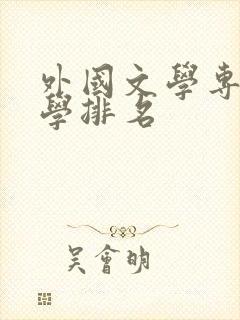 外國文學專
學排名
吳會明